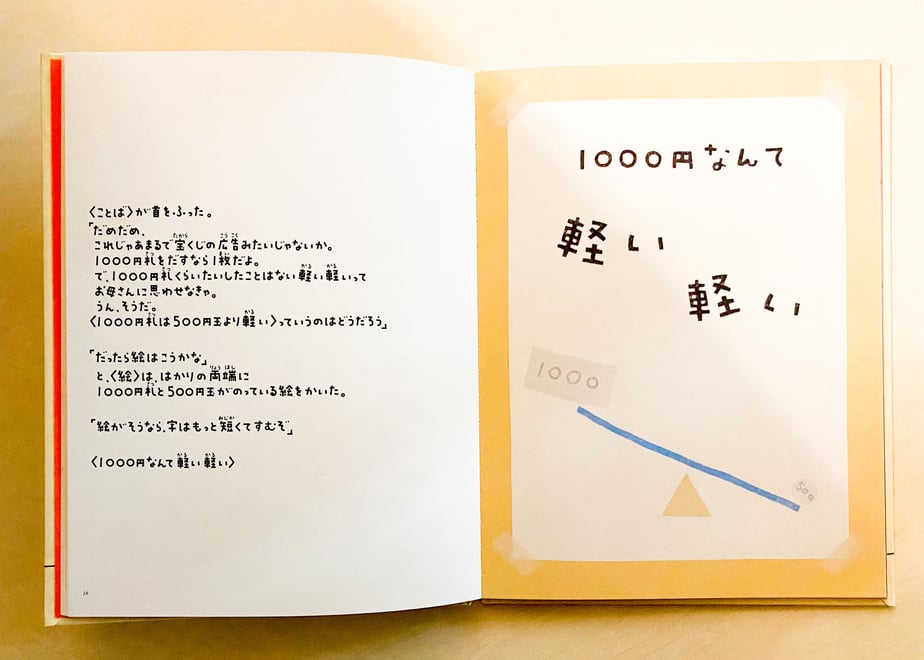 〈ことば〉が首をふった。
「だめだめ、
これじゃあまるで宝くじの広告みたいじゃないか。
1000円札をだすなら1枚だよ。
で、1000円札くらいたいしたことはない軽い軽いって
お母さんに思わせなきゃ。
うん、そうだ。
〈1000円札は500円玉より軽い〉っていうのはどうだろう」
「だったら絵はこうかな」
と、〈絵〉は、はかりの両端に
1000円札と500円玉がのっている絵をかいた。
「絵がそうなら、字はもっと短くてすむぞ」
〈1000円なんて軽い軽い〉
1000円なんて
軽い
軽い
1000
500